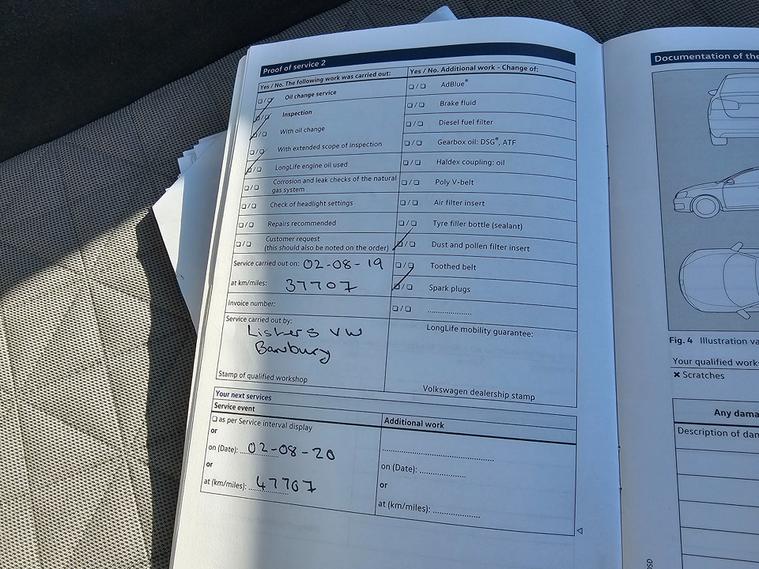 Proof of service 2
Yes / No. The following work was carried out:
☐/☐ Oil change service
☐/☐ Inspection
☐/☐ With oil change
☐/☐ With extended scope of inspection
☐/☐ LongLife engine oil used
☐/☐ Corrosion and leak checks of the natural
gas system
☐/☐ Check of headlight settings
☐/☐ Repairs recommended
☐/☐ Customer request
(this should also be noted on the order)
Service carried out on: 02-08-19
at km/miles: 37707
Invoice number:
Service carried out by:
Listers VW
Banbury
Stamp of qualified workshop
Yes / No. Additional work - Change of:
☐/☐ AdBlue®
☐/☐ Brake fluid
☐/☐ Diesel fuel filter
☐/☐ Gearbox oil: DSG®, ATF
☐/☐ Haldex coupling: oil
☐/☐ Poly V-belt
☐/☐ Air filter insert
☐/☐ Tyre filler bottle (sealant)
☐/☐ Dust and pollen filter insert
☐/☐ Toothed belt
☐/☐ Spark plugs
☐/☐ ....................
LongLife mobility guarantee:
Volkswagen dealership stamp
Your next services
Service event
☐ as per Service interval display
or
on (Date): 02-08-20
or
at (km/miles): 47707
Additional work
on (Date): ...............
or
at (km/miles): ...............
Documentation of the
Fig. 4 Illustration
Your qualified
✕ Scratches
Any
Description of